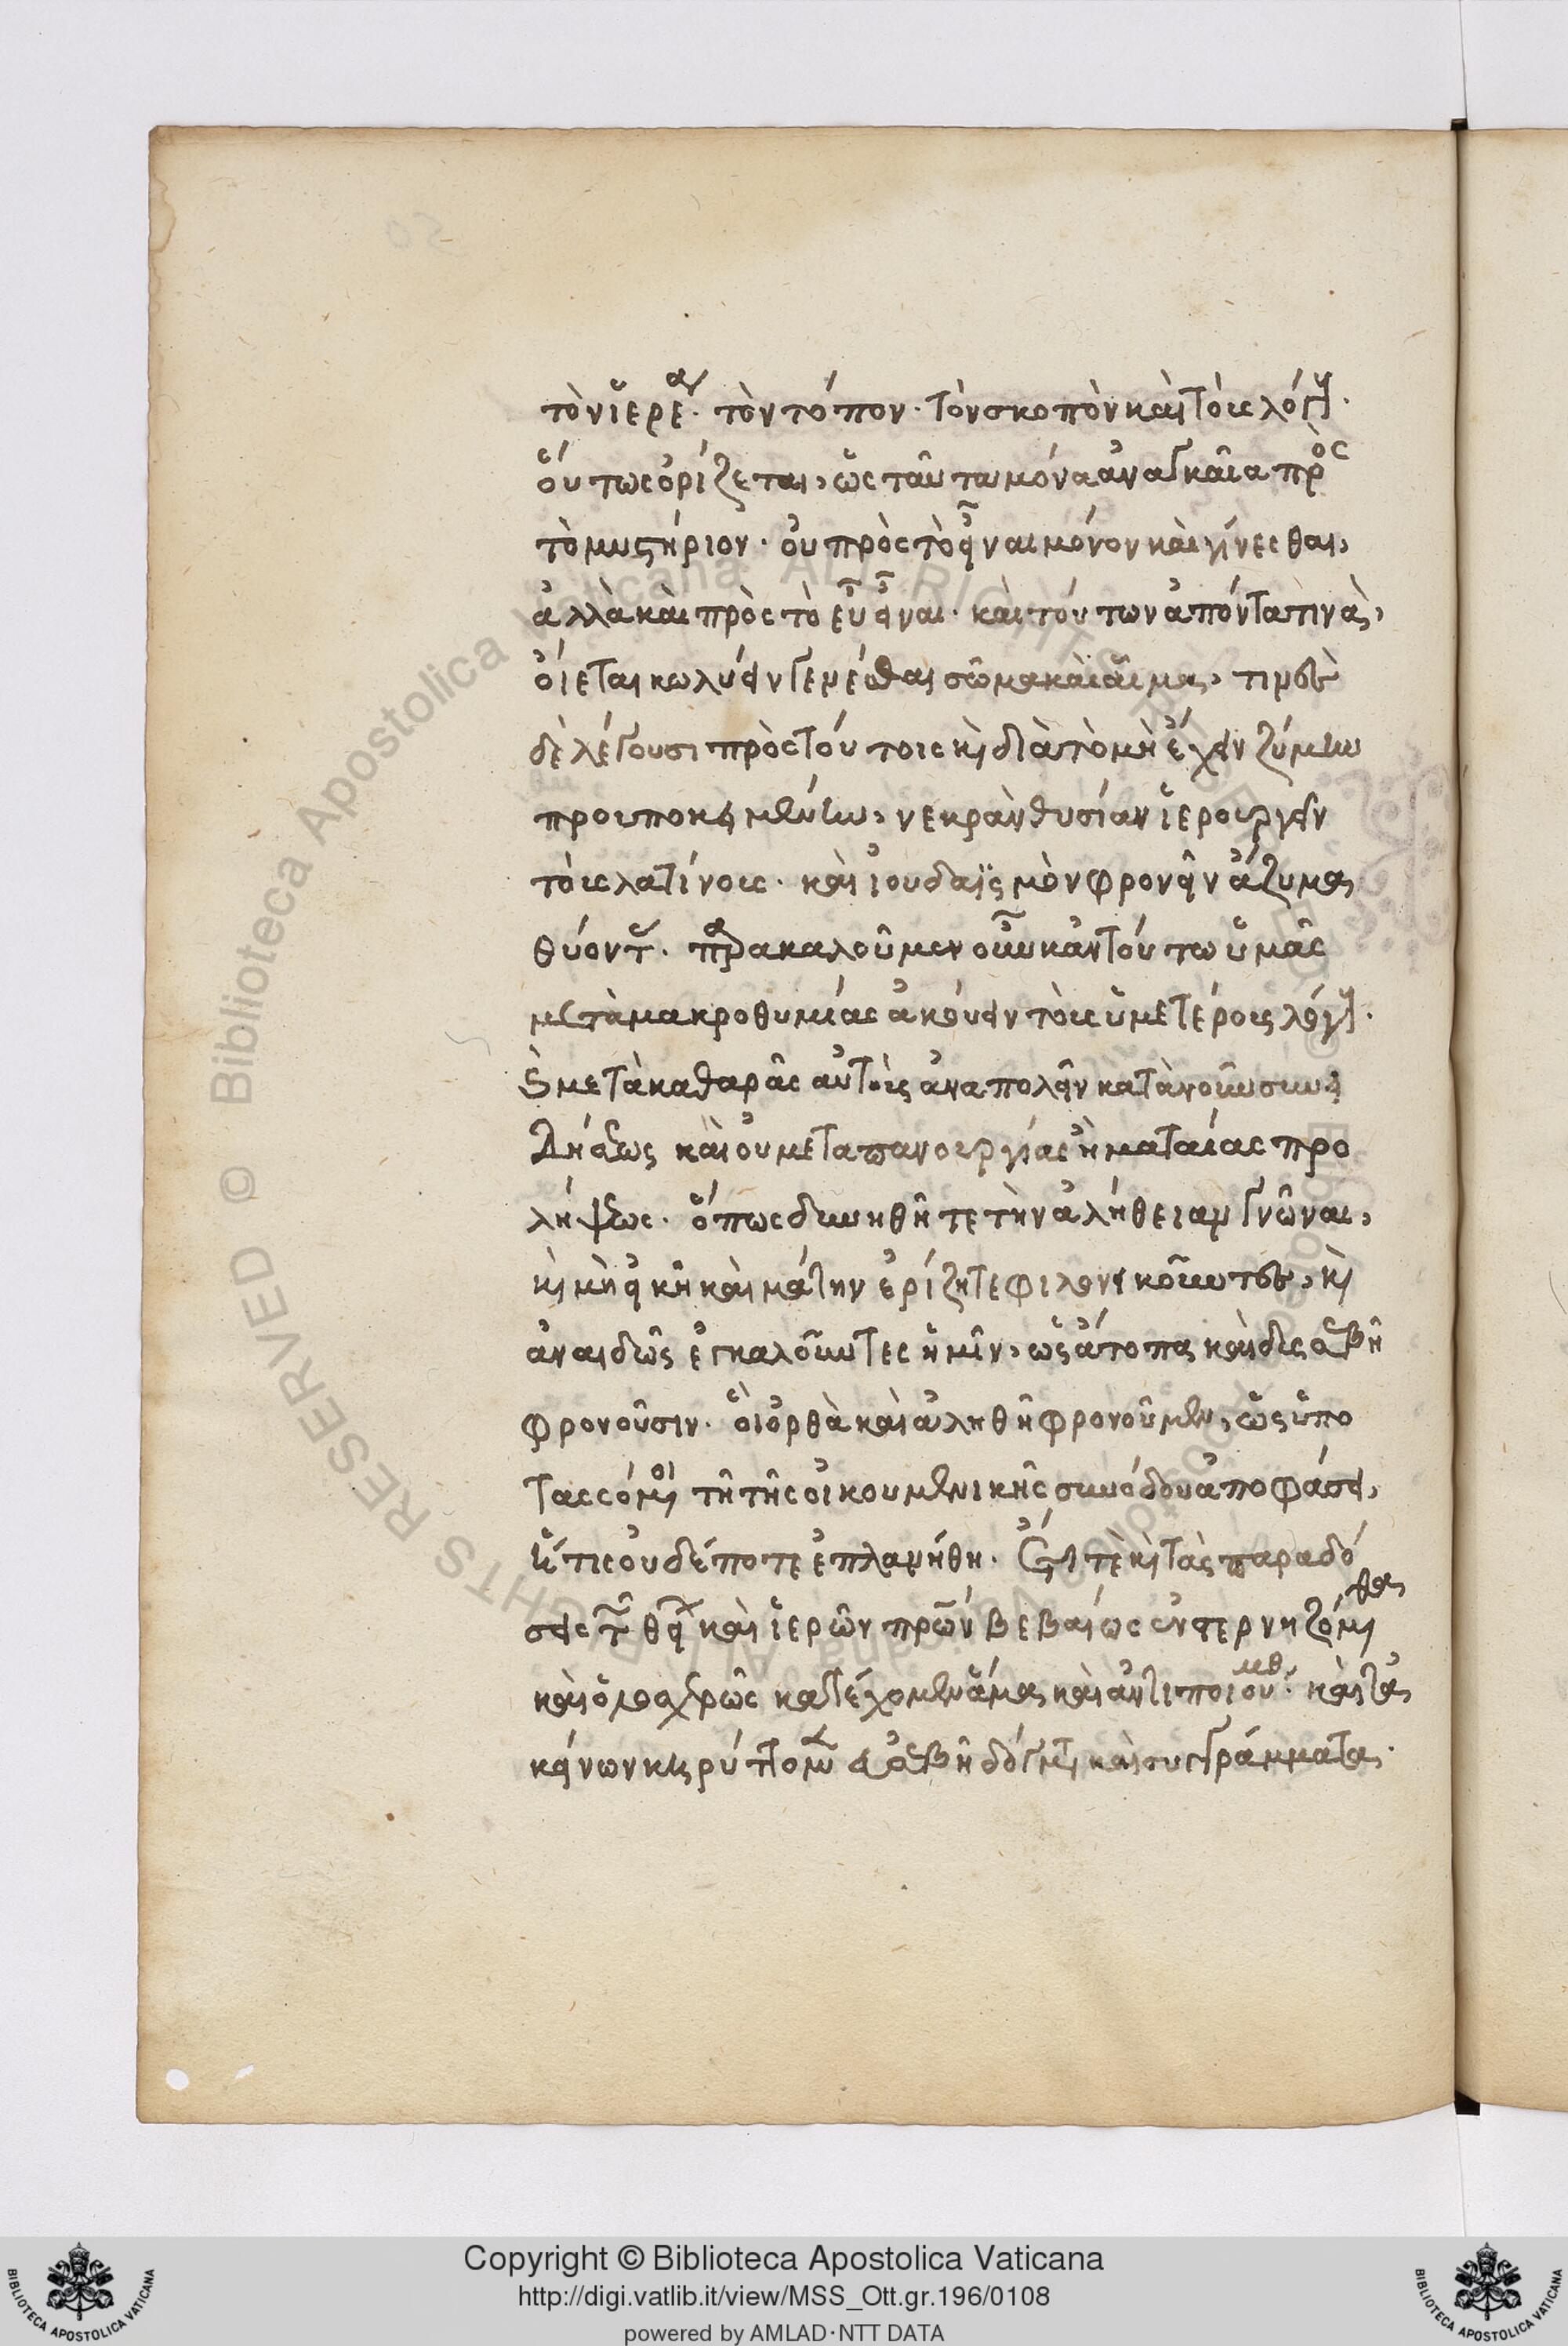 τὸν ἱερέα· τὸν τόπον· τὸν σκοπὸν καὶ τοῖς λόγοις·
οὕτως ὁρίζεται, ὡς ταῦτα μόνα ἀναγκαῖα πρὸς
τὸ μυστήριον· οὐ πρὸς τὸ εἶναι μόνον καὶ γίνεσθαι,
ἀλλὰ καὶ πρὸς τὸ εὖ εἶναι· καὶ τούτων ἀπόντα τινὰ,
οἴεται κωλύειν γενέσθαι σῶμα καὶ αἷμα, τινὲς
δὲ λέγουσι πρὸς τούτοις κὶ διὰ τὸ μὴ ἔχειν ζύμην
προυποκειμένην, νεκρὰν θυσίαν ἱερουργεῖν
τοῖς λατίνοις· καὶ ἰουδαϊσμὸν φρονεῖν ἄζυμα
θύοντες· παρακαλοῦμεν οὖν κἀν τούτω ὑμᾶς
μετὰ μακροθυμίας ἀκούειν τοῖς ὑμετέροις λόγοις·
κὶ μετὰ καθαρᾶς αὐτοῖς ἀναπολεῖν κατὰ νοῦν συν
λήξεως καὶ οὐ μετα πανουργίας ἢ ματαίας προ
λήψεως· ὅπως δυνηθῆτε τὴν ἀλήθειαν γνῶναι,
κὶ μὴ εἰκῆ καὶ μάτην ἐρίζητε φιλονεικοῦντες, κὶ
ἀναιδῶς ἐγκαλοῦντες ἡμῖν, ὡς ἄτοπα καὶ δυσσεβῆ
φρονοῦσιν· οἱ ὀρθὰ καὶ ἀληθῆ φρονοῦμεν, ὡς ὑπο
τασσόμενοι τῇ τῆς οἰκουμενικῆς συνόδου ἀποφάσει,
ἥτις οὐδέποτε ἐπλανήθη· ἔτι τὲ κὶ τὰς παραδό
σεις τῶν θείων καὶ ἱερῶν πρῶν βεβαίως ἐνστερνιζόμεθα
καὶ κατέχομεν ἅμα καὶ ἀντιποιούμεθα· καὶ τὰ
κείνων κηρύττομεν εὐσεβῆ δόγματα καὶ συγγράμματα·
Copyright © Biblioteca Apostolica Vaticana
http://digi.vatlib.it/view/MSS_Ott.gr.196/0108
powered by AMLAD·NTT DATA